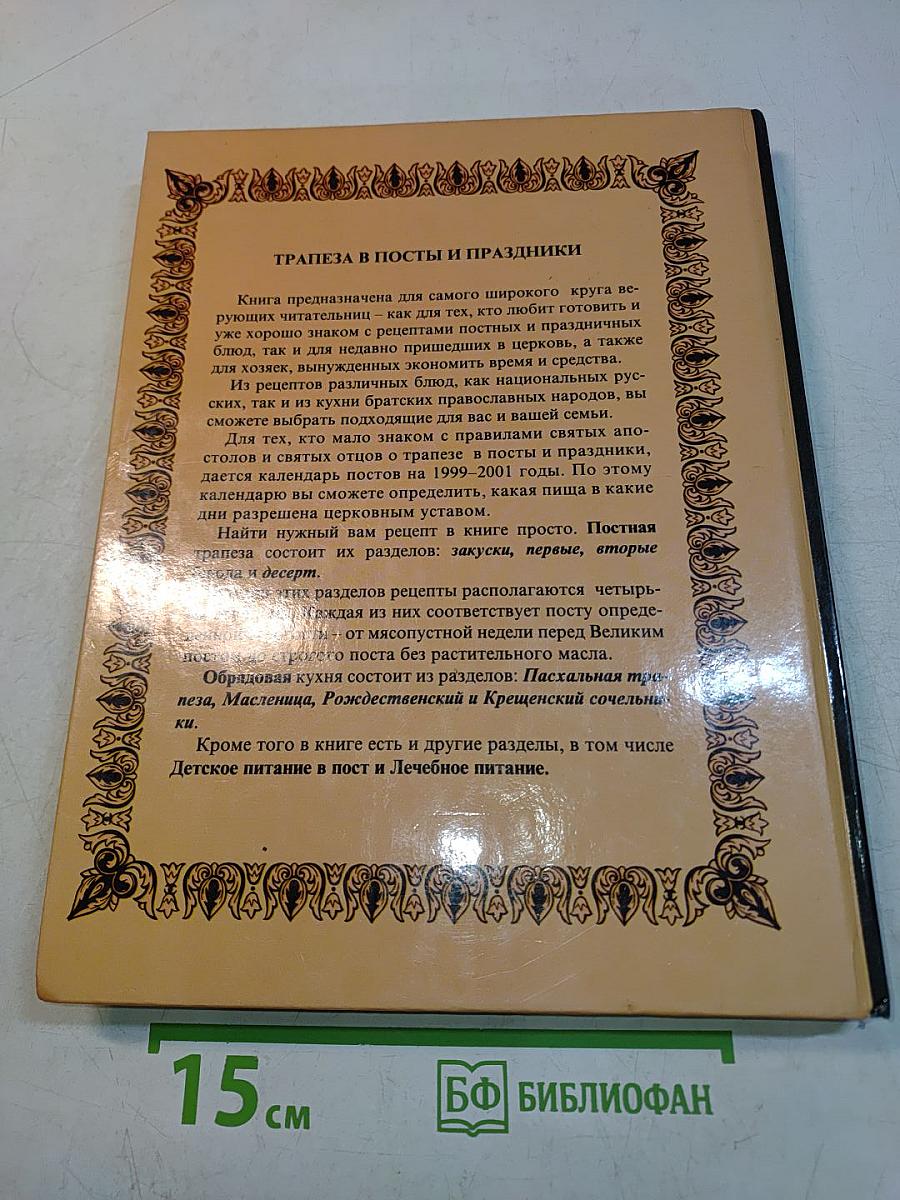 ТРАПЕЗА В ПОСТЫ И ПРАЗДНИКИ
Книга предназначена для самого широкого круга ве-
рующих читательниц – как для тех, кто любит готовить и
уже хорошо знаком с рецептами постных и праздничных
блюд, так и для недавно пришедших в церковь, а также
для хозяек, вынужденных экономить время и средства.
Из рецептов различных блюд, как национальных рус-
ских, так и из кухни братских православных народов, вы
сможете выбрать подходящие для вас и вашей семьи.
Для тех, кто мало знаком с правилами святых апо-
столов и святых отцов о трапезе в посты и праздники,
дается календарь постов на 1999–2001 годы. По этому
календарю вы сможете определить, какая пища в какие
дни разрешена церковным уставом.
Найти нужный вам рецепт в книге просто. Постная
трапеза состоит их разделов: закуски, первые, вторые
и десерт.
этих разделов рецепты располагаются четырь-
Каждая из них соответствует посту опреде-
– от мясопустной недели перед Великим
постом до строгого поста без растительного масла.
Обрядовая кухня состоит из разделов: Пасхальная тра-
пеза, Масленица, Рождественский и Крещенский сочельни-
ки.
Кроме того в книге есть и другие разделы, в том числе
Детское питание в пост и Лечебное питание.
15 см
БФ БИБЛИОФАН